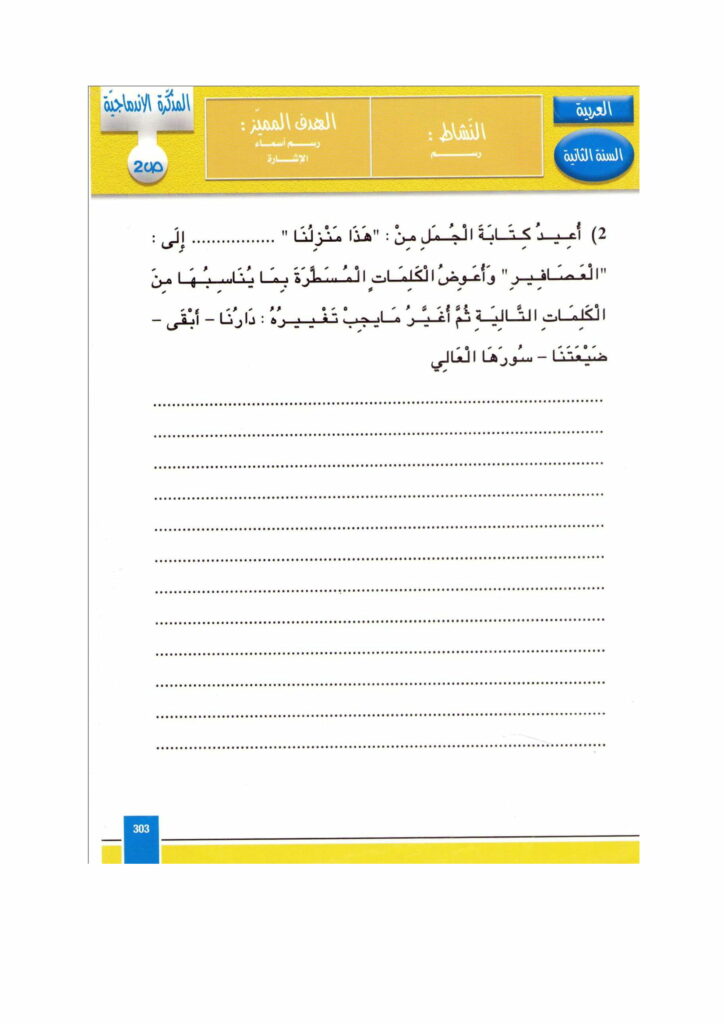 العربيّة
السنة الثانية
النّشاط :
رسم
الهدف المميّز :
رسم أسماء
الإشارة
المذكّرة الاندماجيّة
ص2
2) أُعِيدُ كِتَابَةَ الْجُمَلِ مِنْ : "هَذَا مَنْزِلُنَا " ................ إِلَى :
"الْعَصَافِيرِ" وَأُعَوِضُ الْكَلِمَاتِ الْمُسَطَّرَةَ بِمَا يُنَاسِبُهَا مِنَ
الْكَلِمَاتِ التَّالِيَةِ ثُمَّ أُغَيَّرُ مَايجِبْ تَغْيِيرُهُ : دَارُنَا – أَبْقَى –
ضَيْعَتَنَا – سُورَهَا الْعَالِي
303